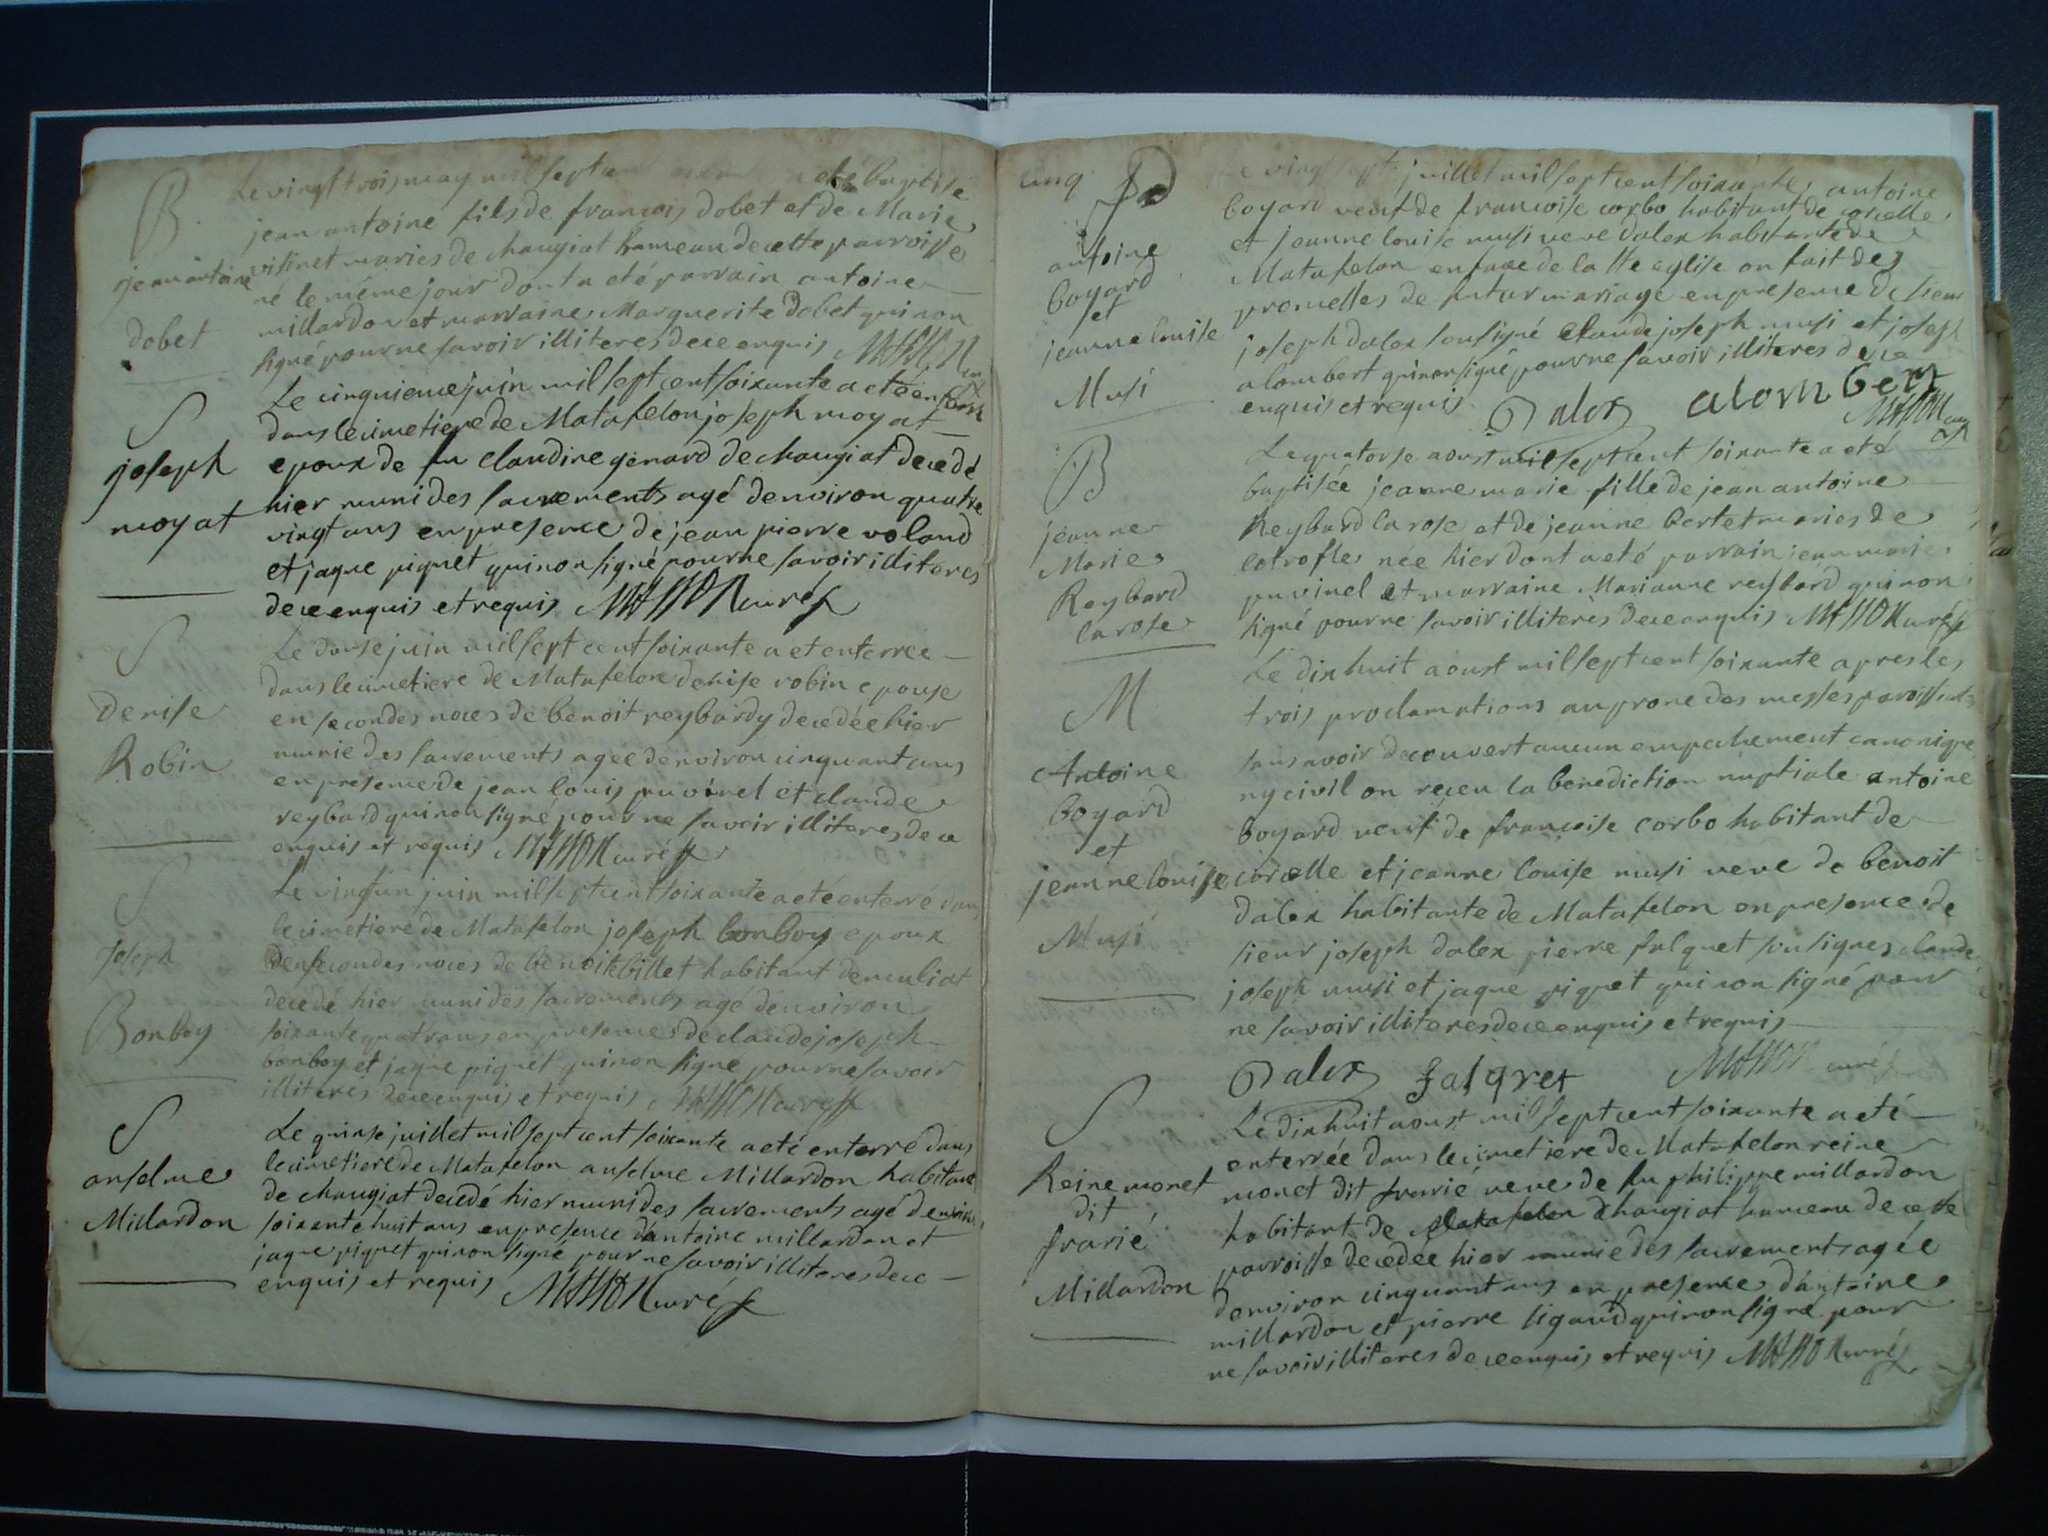 B
jean antoine
dobet
Le vingt trois may mil sept cent a eté baptisé
jean antoine fils de francois dobet et de Marie
vitinet mariés de chaugiat hameau de cette parroisse
né le même jour dont a eté parrain antoine
millardon et marraine Marguerite dobet qui non
signé pour ne savoir illiteres de ce enquis MASSON
S
joseph
moyat
Le cinquieme juin mil sept cent soixante a eté enterré
dans le cimetiere de Matafelon joseph moyat
epoux de fu claudine genard de chaugiat decedé
hier muni des sacrements agé denviron quatre
vingt ans en presence de jean pierre voland
et jaque piquet qui non signé pour ne savoir illiteres
de ce enquis et requis MASSON curé
S
denise
Robin
Le douse juin mil sept cent soixante a eté enterrée
dans le cimetiere de Matafelon denise robin epouse
en secondes noces de benoit reybardy decedée hier
munie des sacrements agée denviron cinquant ans
en presence de jean louis puvinel et claude
reybard qui non signé pour ne savoir illiteres de ce
enquis et requis MASSON curé
S
joseph
Bonboy
Le vingt un juin mil sept cent soixante a eté enterré dans
le cimetiere de Matafelon joseph bonboy epoux
en secondes noces de benoite billet habitant de muliat
decedé hier muni des sacrements agé denviron
soixante quatre ans en presence de claude joseph
bonboy et jaque piquet qui non signé pour ne savoir
illiteres de ce enquis et requis MASSON curé
S
anselme
Millardon
Le quinse juillet mil sept cent soixante a eté enterré dans
le cimetiere de Matafelon anselme Millardon habitant
de chaugiat decedé hier muni des sacrements agé denviron
soixante huit ans en presence dantoine millardon et
jaque piquet qui non signé pour ne savoir illiteres de ce
enquis et requis MASSON curé
cinq
antoine
boyard
et
jeanne louise
Musi
vingt sept juillet mil sept cent soixante antoine
boyard veuf de francoise corbo habitant de corcelle
et jeanne louise musi veve dalex habitante de
Matafelon en face de la ste eglise on fait des
promesses de futur mariage en presence de sieur
joseph dalex sousigné claude joseph musi et joseph
alombert qui non signé pour ne savoir illiteres de ce
enquis et requis Dalex alombert
MASSON curé
B
jeanne
Marie
Reybard
larose
Le quatorse aoust mil sept cent soixante a eté
baptisée jeanne marie fille de jean antoine
Reybard larose et de jeanne bertet mariés de
cotrofle née hier dont a eté parrain jean marie
puvinel et marraine Marianne reybard qui non
signé pour ne savoir illiteres de ce enquis MASSON curé
M
Antoine
boyard
et
jeanne louise
Musi
Le dix huit aoust mil sept cent soixante apres les
trois proclamations au prone des messes paroissiales
sans avoir decouvert aucun empechement canonique
ny civil on receu la benediction nuptiale antoine
boyard veuf de francoise corbo habitant de
corcelle et jeanne louise musi veve de benoit
dalex habitante de Matafelon en presence de
sieur joseph dalex pierre falquet sousignes claude
joseph musi et jaque piquet qui non signé pour
ne savoir illiteres de ce enquis et requis
Dalex falqvet MASSON curé
S
Reine monet
dit
frarié
Millardon
Le dix huit aoust mil sept cent soixante a eté
enterrée dans le cimetiere de Matafelon reine
monet dit frarié veve de fu philippe millardon
habitant de chaugiat hameau de cette
parroisse decedée hier munie des sacrements agée
denviron cinquant ans en presence dantoine
millardon et pierre sigaud qui non signé pour
ne savoir illiteres de ce enquis et requis MASSON curé